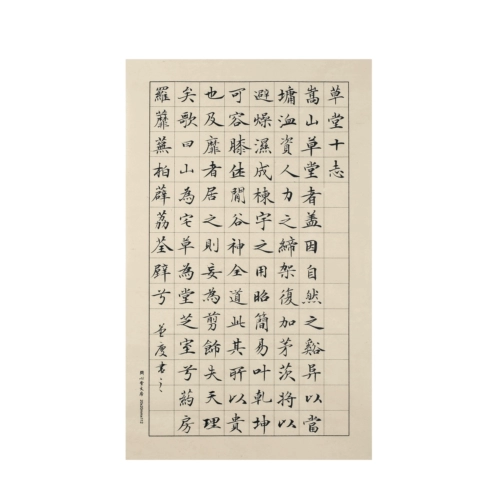 草堂十志
嵩山草堂者盖因自然之谿异以當
墉洫資人力之締架復加茅茨將以
避燥濕成棟宇之用昭簡易叶乾坤
可容膝休閒谷神全道此其所以貴
也及靡者居之則妄為剪飾失天理
矣歌曰山為宅草為堂芝室兮葯房
羅蘼蕪柏薜荔荃壁兮